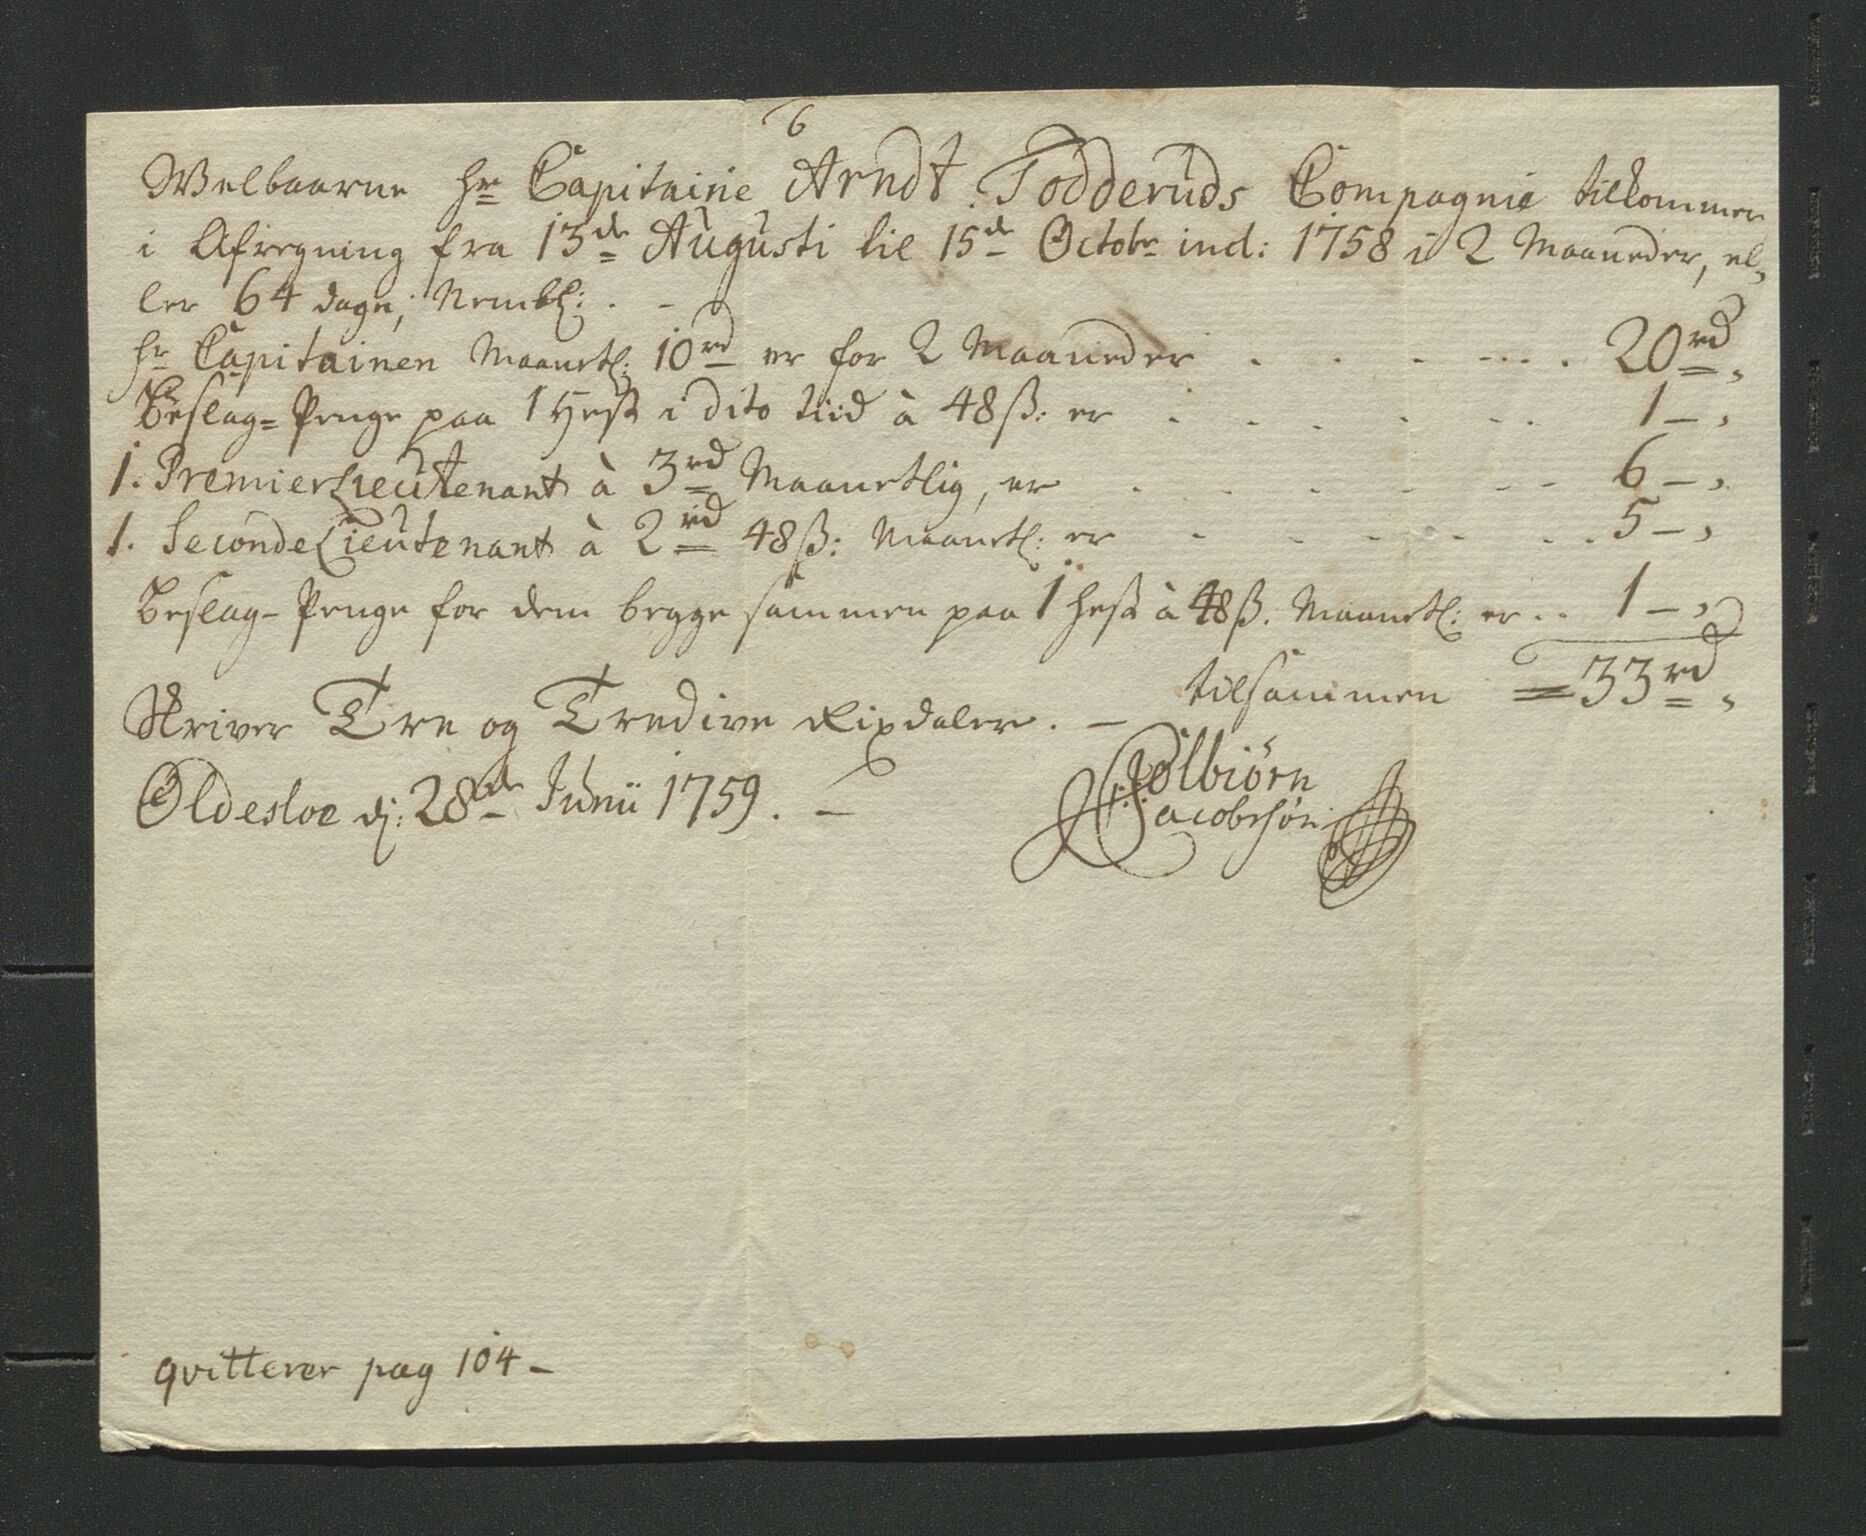 6
Welbaarne Hr Capitaine Arndt Todderuds Compagnie tilkommer
i Afregning fra 13de Augusti til 15de Octobr incl: 1758 i 2 Maaneder, el-
ler 64 dage, Nembl: . -
Hr Capitainen Maanetl: 10rd er for 2 Maaneder . . . . - - - . 20rd,
Beslag=Penge paa 1 Hest i dito tiid à 48ß: er . . . . - - . 1 - ,
1. PremierLieutenant à 3rd Maanetlig, er . . . . . - - 6 - ,
1. SecondeLieutenant à 2rd 48ß: Maanetl: er . . . . . . . 5 - ,
Beslag-Penge for dem begge sammen paa 1 Hest à 48ß. Maanetl: er . . 1 - ,
tilsammen = 33rd,
Skriver Tre og Tredive Rixdaler. -
Oldesloe dj: 28de Junii 1759. -
Tolbiörn
Jacobsön
qvitterer pag 104 -